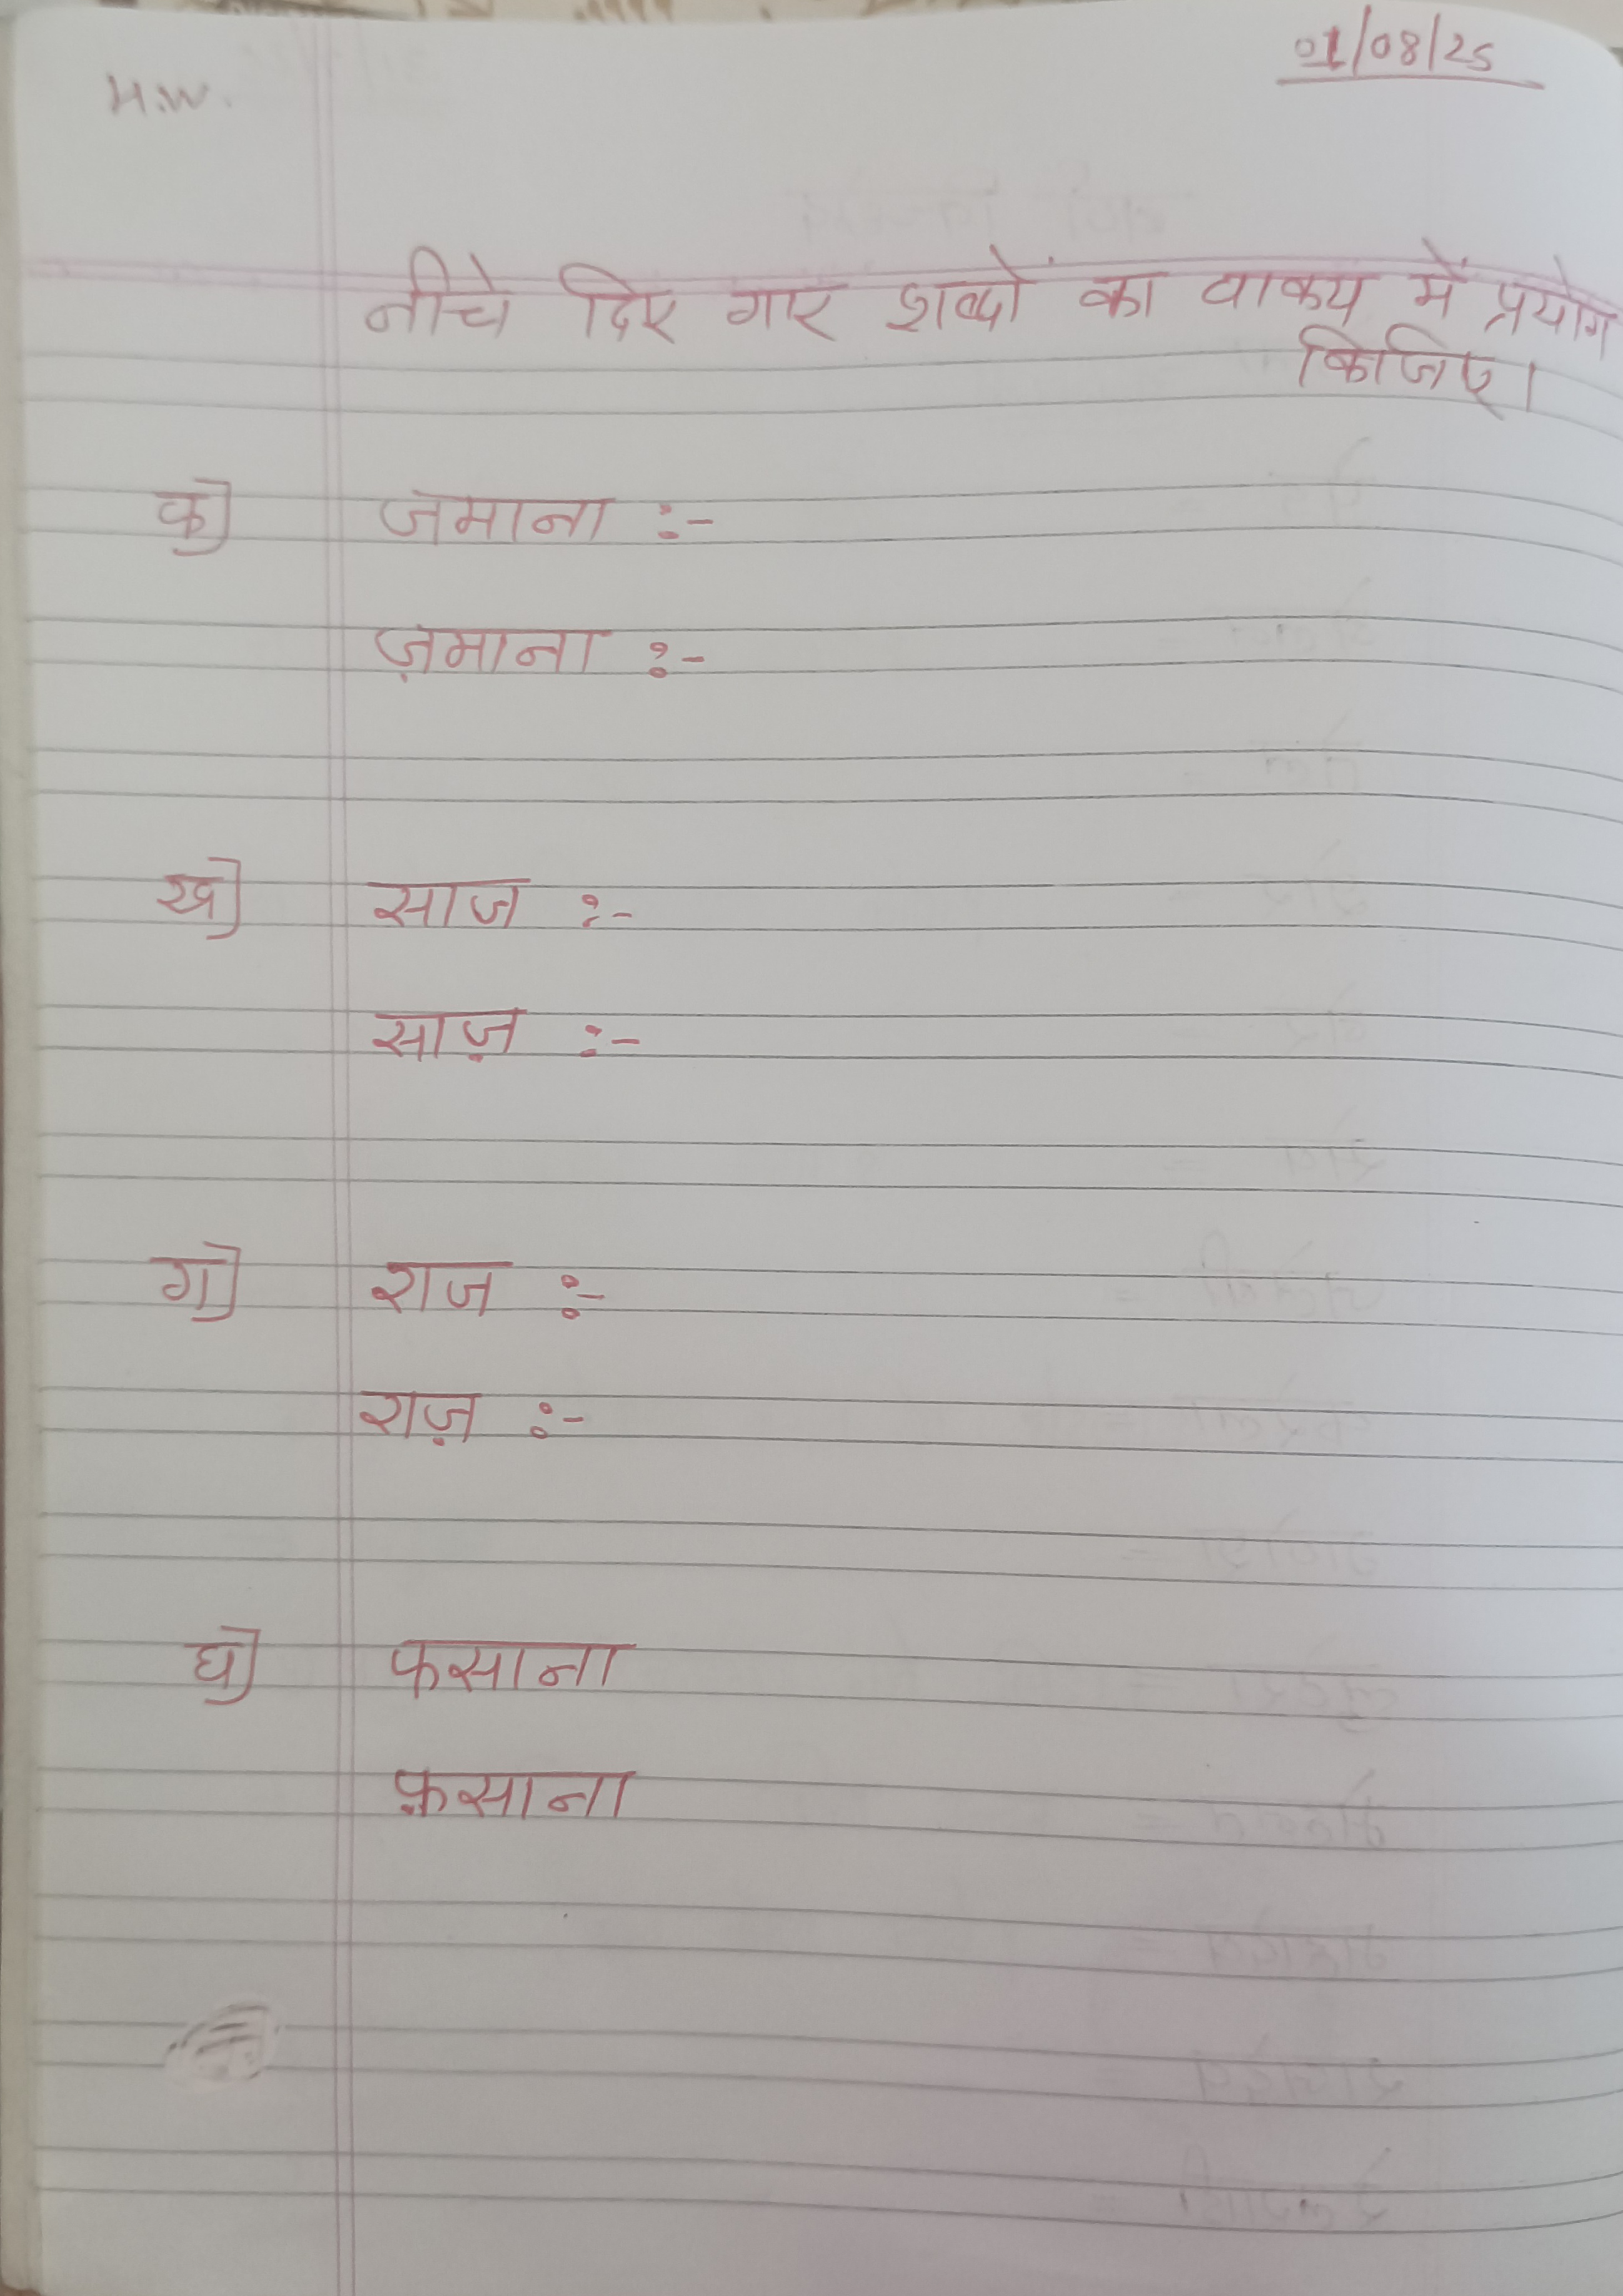 01/08/25
H.W.
नीचे दिए गए शब्दों का वाक्य में प्रयोग
किजिए।
क) जमाना :-
ज़माना :-
ख) साज :-
साज़ :-
ग) राज :-
राज़ :-
घ) फसाना
फ़साना